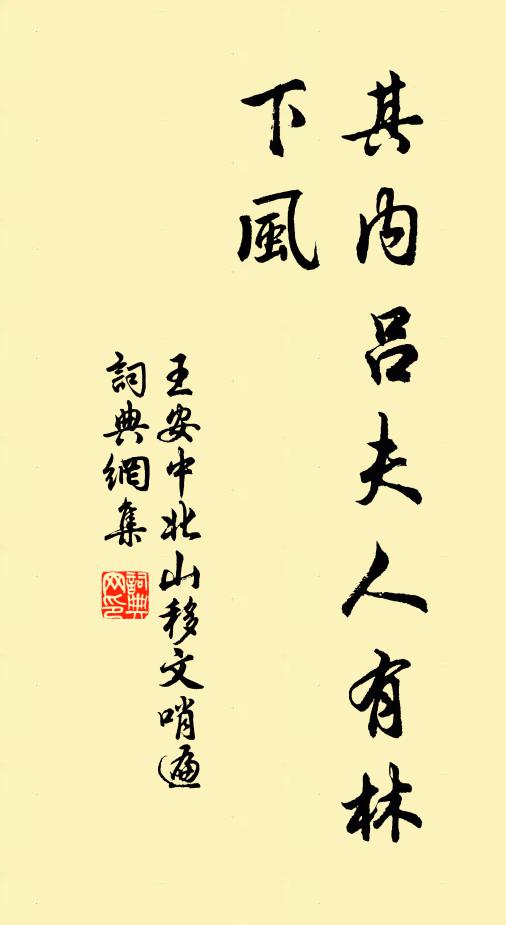 其內呂夫人有林
下風
王安中北山移文哨遍
詞典網集
詞典
网印